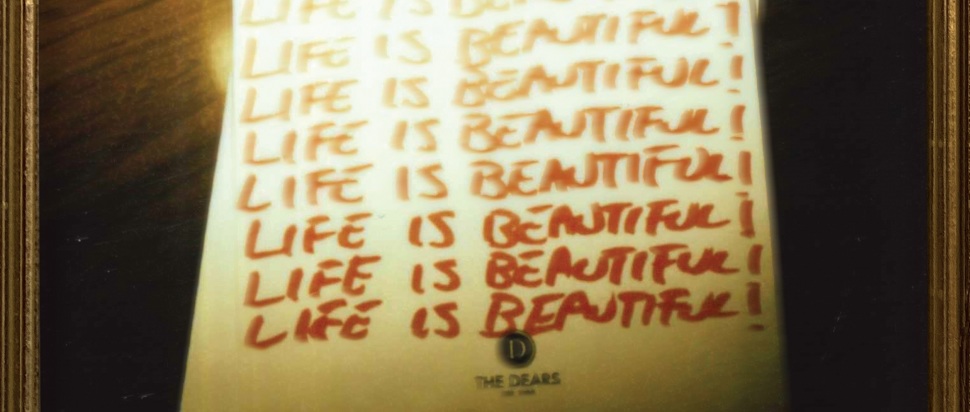 LIFE IS BEAUTIFUL!
LIFE IS BEAUTIFUL!
LIFE IS BEAUTIFUL!
LIFE IS BEAUTIFUL!
LIFE IS BEAUTIFUL!
LIFE IS BEAUTIFUL!
LIFE IS BEAUTIFUL!
LIFE IS BEAUTIFUL!
D
THE DEARS